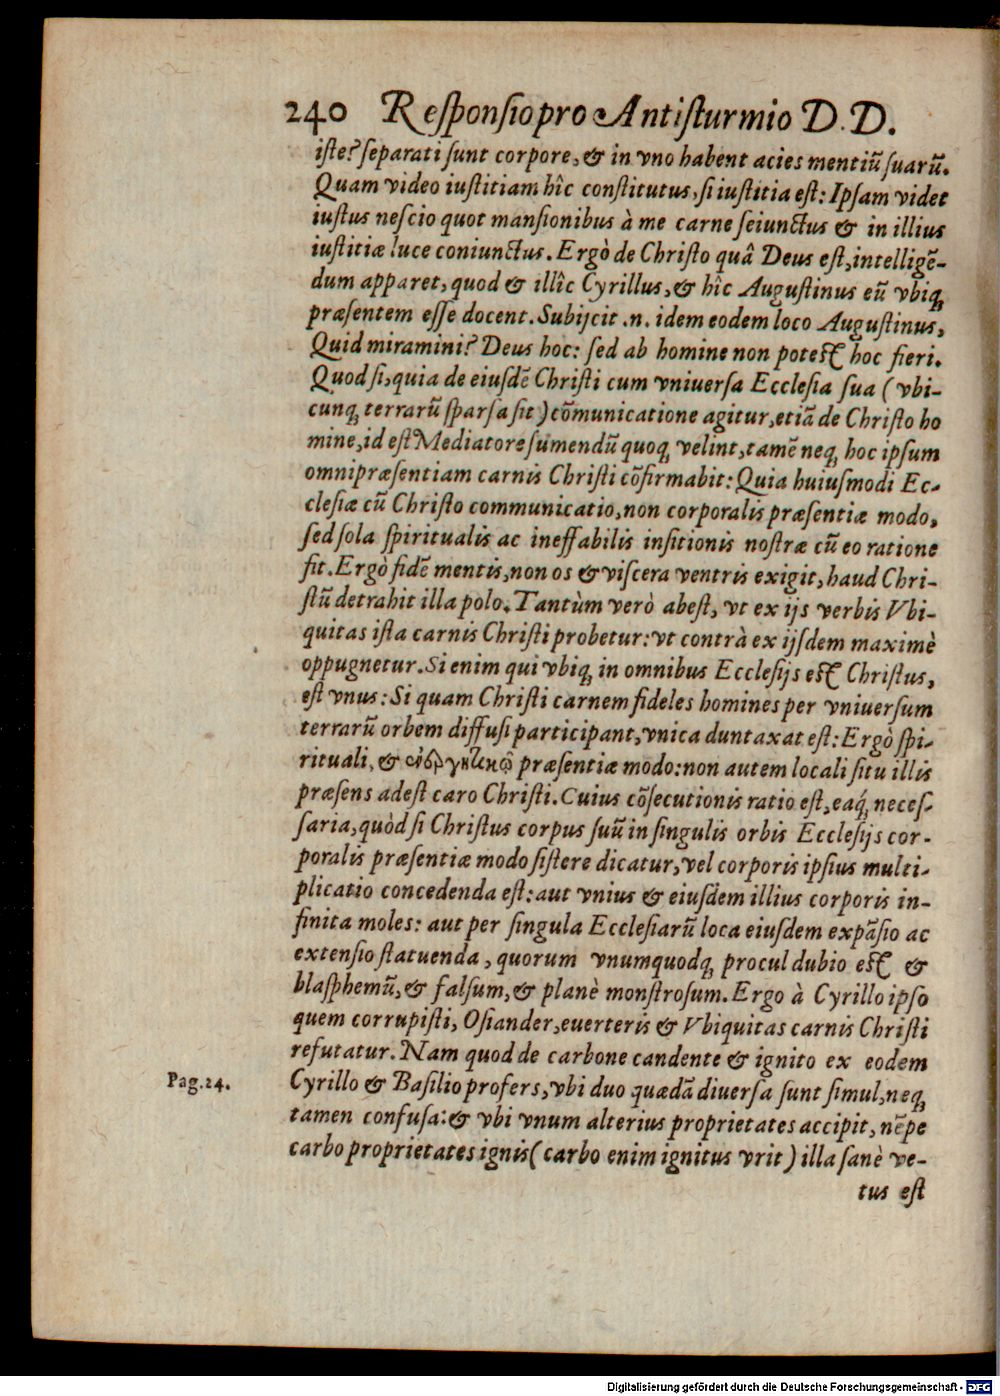 240 Responsio pro Antisturmio D. D.
iste? separati sunt corpore, & in vno habent acies mentiũ suarũ.
Quam video iustitiam hîc constitutus, si iustitia est: Ipsam videt
iustus nescio quot mansionibus à me carne seiunctus & in illius
iustitiæ luce coniunctus. Ergò de Christo quâ Deus est, intelligẽ-
dum apparet, quod & illîc Cyrillus, & hîc Augustinus eũ vbiq;
præsentem esse docent. Subijcit .n. idem eodem loco Augustinus,
Quid miramini? Deus hoc: sed ab homine non potest hoc fieri.
Quod si, quia de eiusdẽ Christi cum vniuersa Ecclesia sua (vbi-
cunq; terrarũ sparsa sit) cõmunicatione agitur, etiã de Christo ho
mine, id est Mediatore sumendũ quoq; velint, tamẽ neq; hoc ipsum
omnipræsentiam carnis Christi cõfirmabit: Quia huiusmodi Ec-
clesiæ cũ Christo communicatio, non corporalis præsentiæ modo,
sed sola spiritualis ac ineffabilis insitionis nostræ cũ eo ratione
fit. Ergò fidẽ mentis, non os & viscera ventris exigit, haud Chri-
stũ detrahit illa polo. Tantùm verò abest, vt ex ijs verbis Vbi-
quitas ista carnis Christi probetur: vt contrà ex ijsdem maximè
oppugnetur. Si enim qui vbiq; in omnibus Ecclesijs est Christus,
est vnus: Si quam Christi carnem fideles homines per vniuersum
terrarũ orbem diffusi participant, vnica duntaxat est: Ergò spi-
rituali, & præsentiæ modo: non autem locali situ illis
præsens adest caro Christi. Cuius cõsecutionis ratio est, eaq́; neces-
saria, quòd si Christus corpus suũ in singulis orbis Ecclesijs cor-
poralis præsentiæ modo sistere dicatur, vel corporis ipsius multi-
plicatio concedenda est: aut vnius & eiusdem illius corporis in-
finita moles: aut per singula Ecclesiarũ loca eiusdem expãsio ac
extensio statuenda, quorum vnumquodq; procul dubio est &
blasphemũ, & falsum, & planè monstrosum. Ergo à Cyrillo ipso
quem corrupisti, Osiander, euerteris & Vbiquitas carnis Christi
refutatur. Nam quod de carbone candente & ignito ex eodem
Pag. 24. Cyrillo & Basilio profers, vbi duo quædã diuersa sunt simul, neq;
tamen confusa: & vbi vnum alterius proprietates accipit, nẽpe
carbo proprietates ignis (carbo enim ignitus vrit) illa sanè ve-
tus est
Digitalisierung gefördert durch die Deutsche Forschungsgemeinschaft - DFG